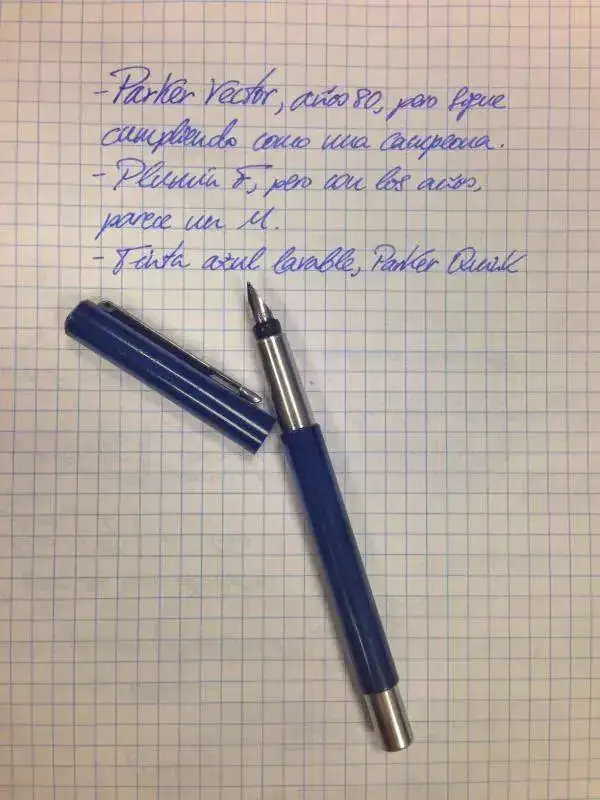 - Parker Vector, años 80, pero sigue
cumpliendo como una campeona.
- Plumín F, pero con los años,
parece un M.
- Tinta azul lavable, Parker Quink